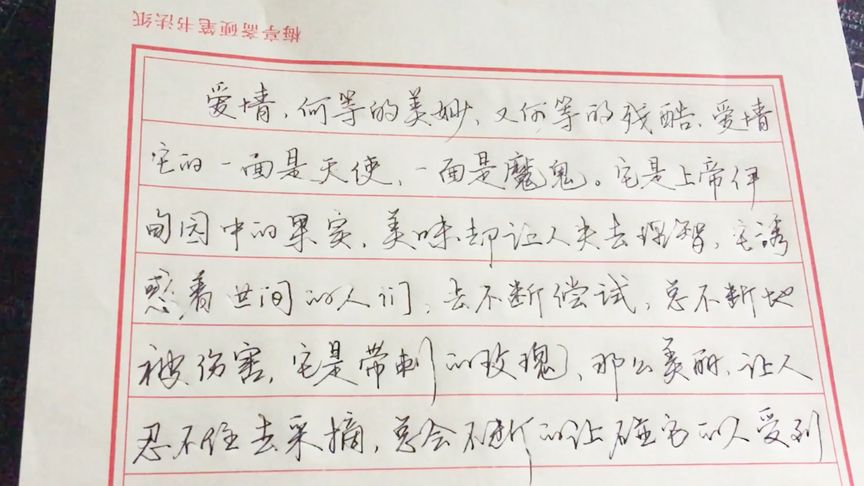 梅亭斋硬笔书法纸
爱情,何等的美妙,又何等的残酷,爱情
它的一面是天使,一面是魔鬼。它是上帝伊
甸园中的果实,美味却让人失去理智,它诱
惑着世间的人们,去不断偿试,总不断地
被伤害,它是带刺的玫瑰,那么美丽,让人
忍不住去采摘,总会不断的让碰它的人受到